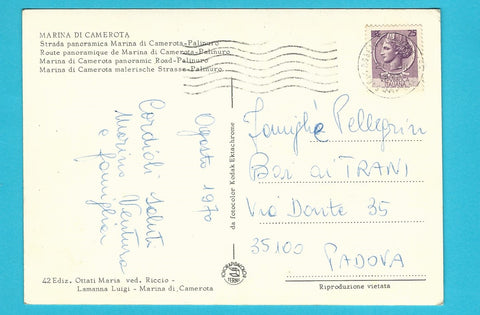 MARINA DI CAMEROTA
Strada panoramica Marina di Camerota-Palinuro
Route panoramique de Marina de Camerota-Palinuro
Marina di Camerota panoramic Road-Palinuro
Marina di Camerota malerische Strasse-Palinuro
Agosto 1970
Cordiali Saluti
Marino Ventura
e famiglia
42 Ediz. Ottati Maria ved. Riccio -
Lamanna Luigi - Marina di Camerota
da fotocolor Kodak Ektachrome
Famiglia Pellegrini
TRANI
Via Dante 35
35100
PADOVA
Riproduzione vietata